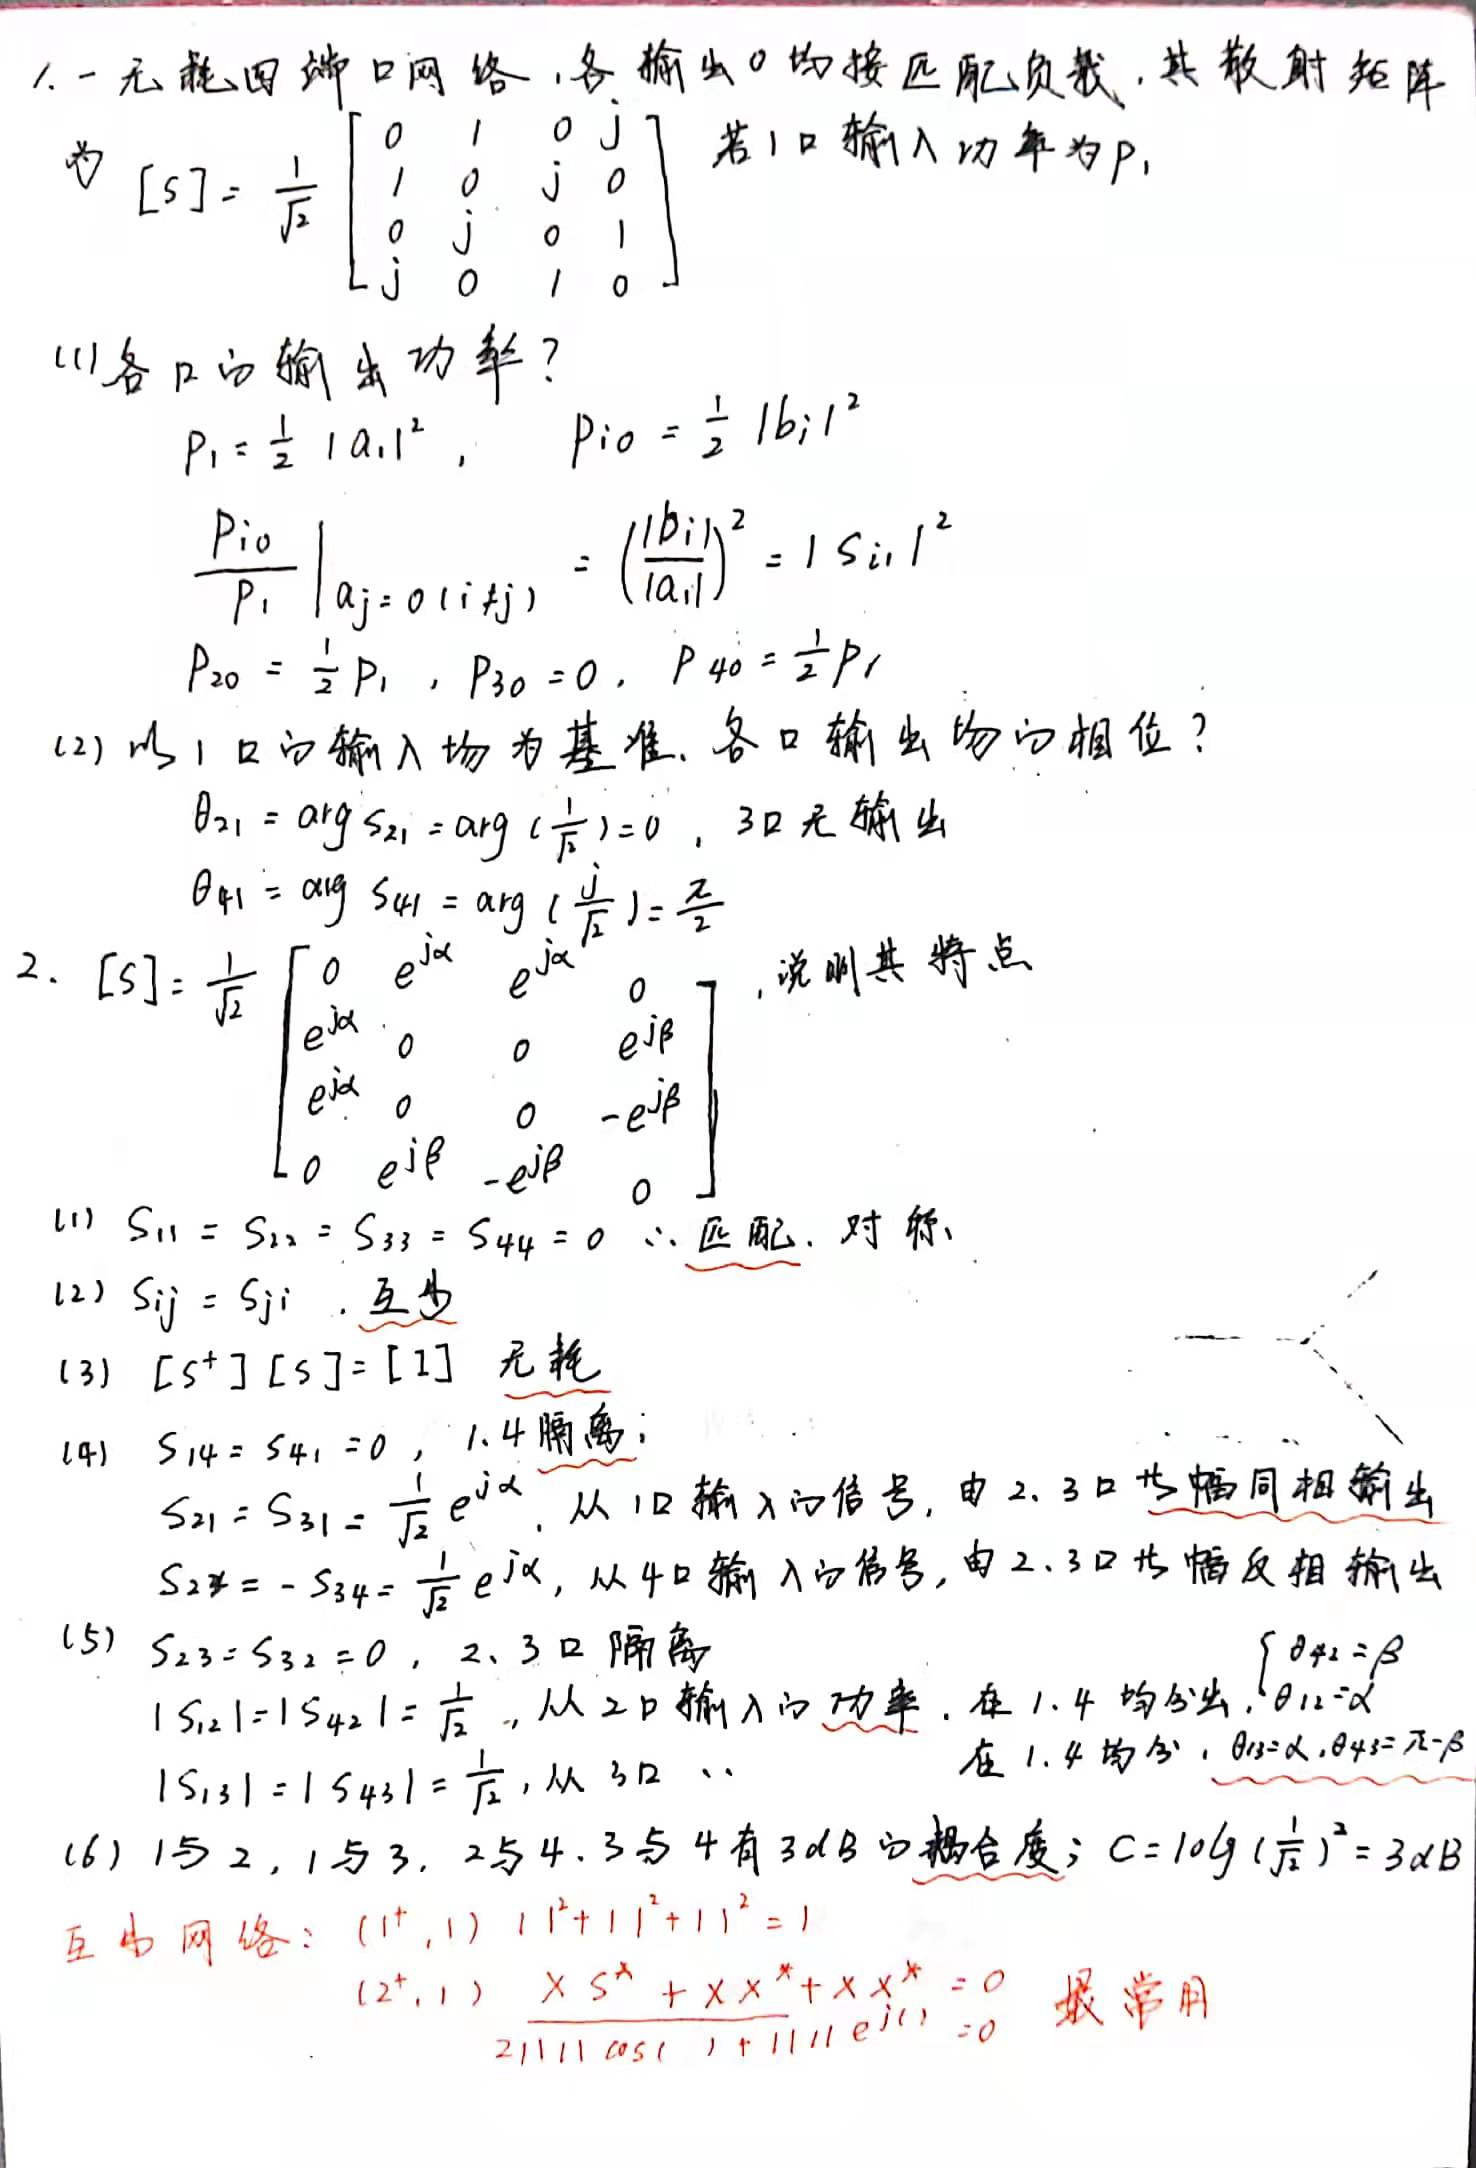 1.一无耗四端口网络,各输出口均接匹配负载.其散射矩阵
为 [S]= 1/√2 [0 1 0 j 若1口输入功率为P₁
1 0 j 0
0 j 0 1
j 0 1 0]
(1)各口的输出功率?
P₁=1/2 |a₁|², Pi0 = 1/2 |bi|²
Pi0/P₁ | aj=0(i≠j) = (|bi|/|a₁|)² = |Si₁|²
P20 = 1/2 P₁, P30=0, P40=1/2 P₁
(2)以1口的输入场为基准、各口输出场的相位?
θ21 = arg S21 = arg(1/√2)=0, 3口无输出
θ41 = arg S41 = arg(j/√2)=π/2
2. [S]= 1/√2 [0 e^jα e^jα 0 ,说明其特点
e^jα 0 0 e^jβ
e^jα 0 0 -e^jβ
0 e^jβ -e^jβ 0]
(1) S11 = S22 = S33 = S44 = 0 ∴匹配.对称、
(2) Sij = Sji .互易
(3) [S⁺][S]=[I] 无耗
(4) S14=S41=0, 1.4隔离;
S21=S31=1/√2 e^jα, 从1口输入的信号,由2.3口等幅同相输出
= -S34=1/√2 e^jα,从4口输入的信号,由2.3口等幅反相输出
(5) S23=S32=0, 2、3口隔离
|S12|=|S42|=1/√2,从2口输入的功率.在1.4均分出, {θ42=β
θ12=α
|S13|=|S43|=1/√2,从3口 ‥ 在1.4均分,θ13=α,θ43=π-β
(6) 1与2,1与3.2与4.3与4有3dB的耦合度; C=10lg(1/√2)²=3dB
互易网络: (1⁺,1) | |²+| |²+| |²=1
(2⁺,1) X S* + X X* + X X* =0 最常用
2| || | cos( )+| || | e^j( ) =0